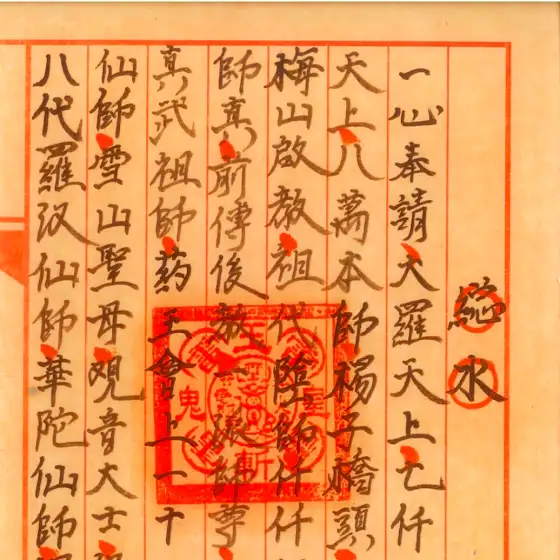 總水
一心奉請大羅天上七仟
天上八萬本師楊子橋頭
梅山啟教祖代臨師仟仟
師真前傳後教一派師尊
真武祖師藥王會上一十
仙師雪山聖母观音大士
八代羅汉仙師華陀仙師